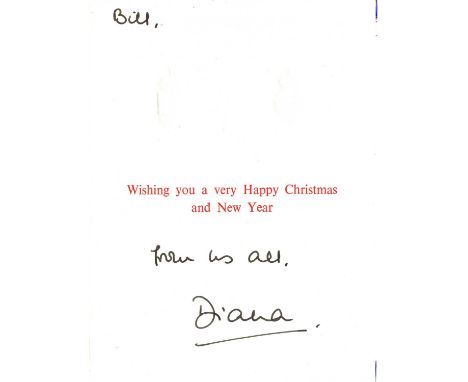 Bill,
Wishing you a very Happy Christmas
and New Year
from us all.
Diana.